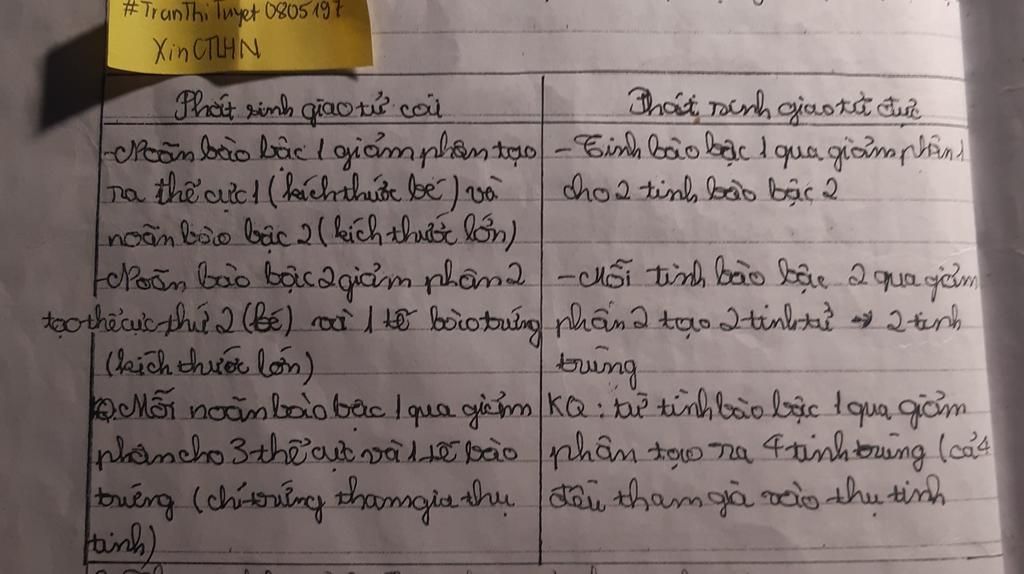 #TranThiTuyet0805197
XinCTLHN
Phát sinh giao tử cái
- Noãn bào bậc 1 giảm phân tạo
ra thể cực 1 (kích thước bé) và
noãn bào bậc 2 (kích thước lớn)
- Noãn bào bậc 2 giảm phân 2
tạo thể cực thứ 2 (bé) và 1 tế bào trứng
(kích thước lớn)
KQ: Mỗi noãn bào bậc 1 qua giảm
phân cho 3 thể cực và 1 tế bào
trứng (chỉ trứng tham gia thụ
tinh)
Phát sinh giao tử đực
- Tinh bào bậc 1 qua giảm phân 1
cho 2 tinh bào bậc 2
- Mỗi tinh bào bậc 2 qua giảm
phân 2 tạo 2 tinh tử → 2 tinh
trùng
KQ: từ tinh bào bậc 1 qua giảm
phân tạo ra 4 tinh trùng (cả 4
đều tham gia vào thụ tinh